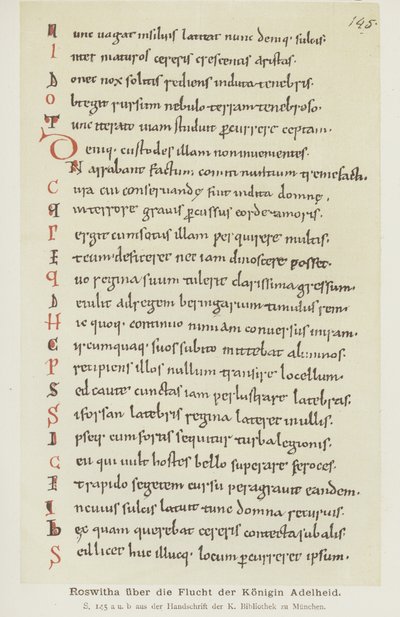 145.
Nunc uagat insiluis latitat nunc deniq· sulcis·
Inter maturos cereris crescentis aristas·
Donec nox solitis rediens induta tenebris·
Obtegit rursum nebulo terram tenebroso·
Tunc iterato uiam studuit pcurrere ceptam·
Deniq· custodes illam non inuenientes·
Narrabant factum comiti nimium tremefacti·
Cura cui conseruandę fuit indita domnę·
Qui terrore grauis pcussus corde timoris·
Pergit cum sotiis illam perquirere multis·
Et cum desiceret nec iam dinoscere posset·
Quo regina suum tulerit clarissima gressum·
Detulit ad regem beringarium timidus rem·
Hic quoq· continuo nimiam conuersus in iram·
Circumquaq· suos subito mittebat alumnos·
Precipiens illos nullum transire locellum·
Sed caute cunctas iam perlustrare latebras·
Si forsan latebris regina lateret in ullis·
Ipseq· cum fortis sequitur turba legionis·
Ceu qui uult hostes bello superare feroces·
Et rapido segetem cursu peragrauit eandem·
In cuius sulcis latuit tunc domna recuruis·
Hęc quam querebat cereris contecta sub alis·
Sed licet huc illucq· locum pcurreret ipsum·
Roswitha über die Flucht der Königin Adelheid.
S. 145 a u. b aus der Handschrift der K. Bibliothek zu München.